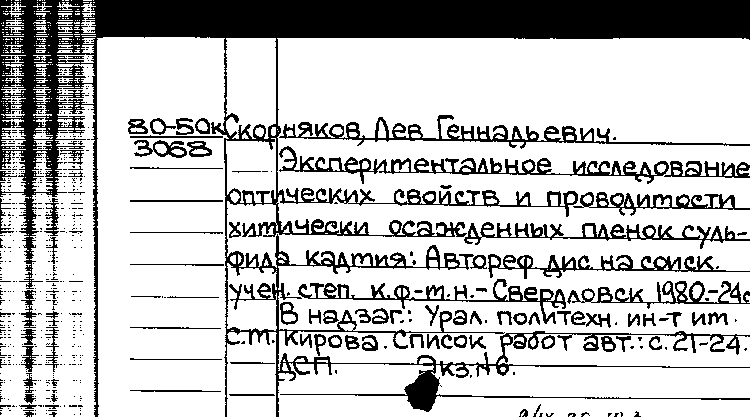 80-50к Скорняков, Лев Геннадьевич.
3068
Экспериментальное исследование
оптических свойств и проводимости
химически осажденных пленок суль-
фида кадмия: Автореф дис. на соиск.
учен. степ. к.ф.-м.н. - Свердловск, 1980.-24с
В надзаг.: Урал. политехн. ин-т им.
С.М. Кирова. Список работ авт.: с. 21-24.
ДСП. Экз.№6.